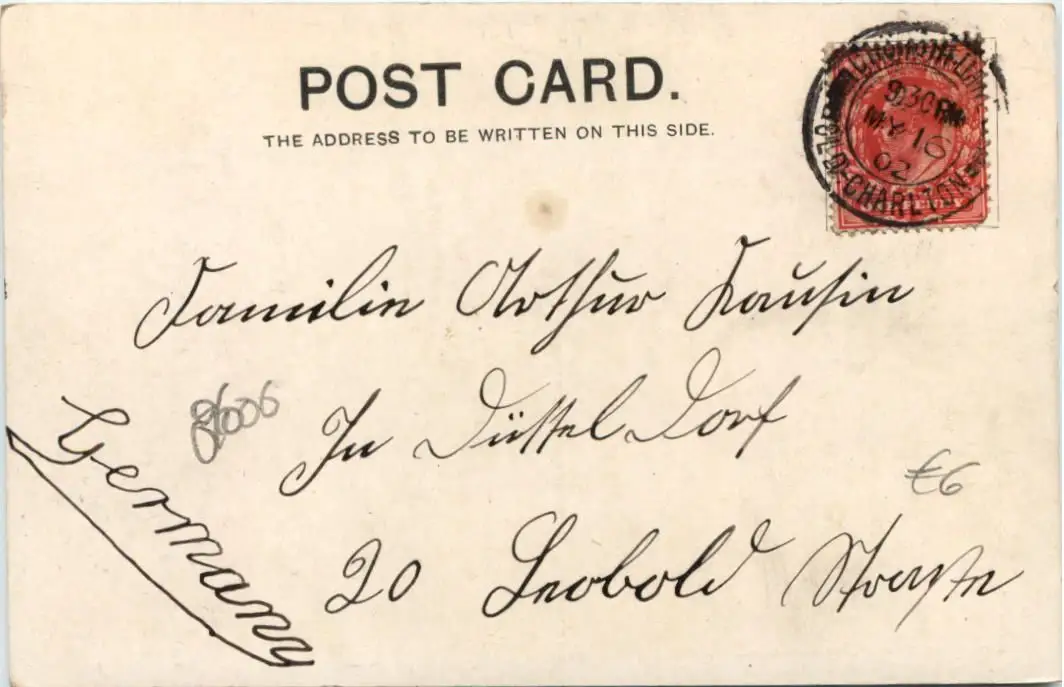 POST CARD.
THE ADDRESS TO BE WRITTEN ON THIS SIDE.
9.30 PM
MY 16
02
CHARLTON
Familie Arthur Kausin
In Düssel Dorf
Germany
20 Leobold Strasse
€6